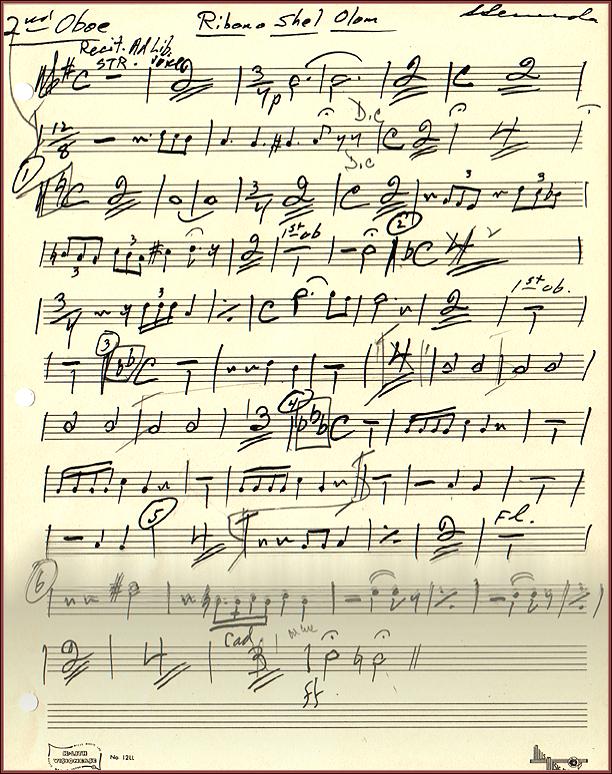 2nd Oboe Ribono Shel Olom
Recit. Ad Lib.
STR.
D.C
D.C
1
2
1st ob
1st ob.
3
4
5
Fl.
6
Cad.
ff.
No 12LL